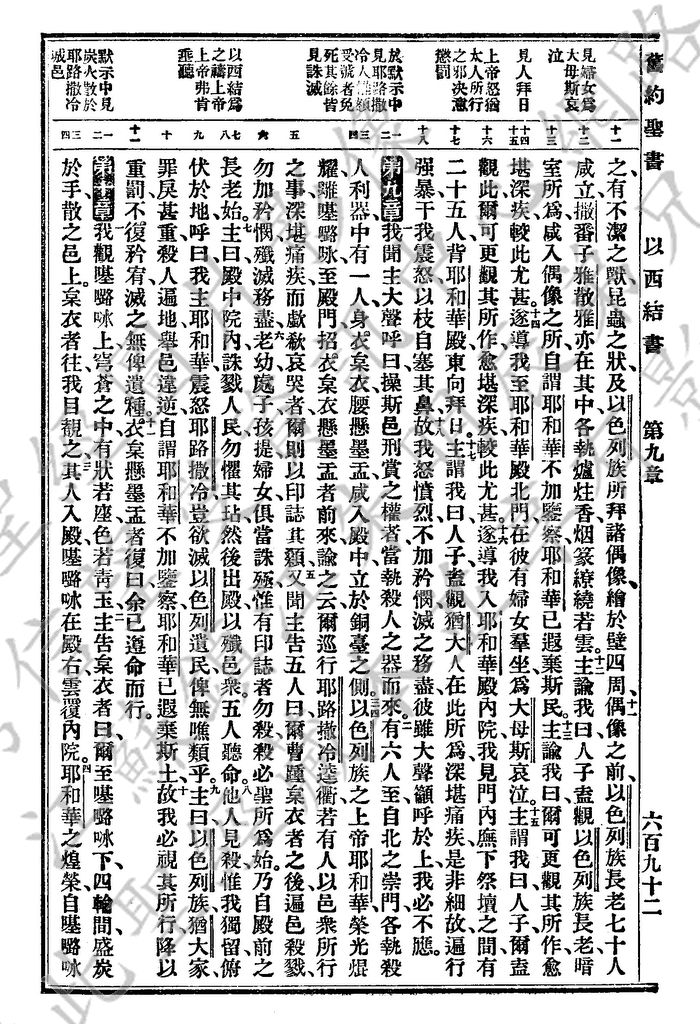 舊約聖書 以西結書 第九章 六百九十二
見婦女爲
大母斯哀
泣
見人拜日
上帝怒猶
太人所行
之邪決意
懲罰
於默示中
見耶路撒
冷人維額
受號者免
死其餘皆
見誅滅
以西結爲
之禱上帝
上帝弗肯
垂聽
默示中見
炭火散於
耶路撒冷
城邑
十一
十二
十三
十四
十五
十六
十七
十八
一二
三四
五
六
七八
九
十
十一
一二
三四
之有不潔之獸昆蟲之狀及以色列族所拜諸偶像繪於壁四周偶像之前以色列族長老七十人
咸立撒番子雅散雅亦在其中各執爐炷香烟篆繚繞若雲主諭我曰人子盍觀以色列族長老暗
室所爲咸入偶像之所自謂耶和華不加鑒察耶和華已遐棄斯民主諭我曰爾可更觀其所作愈
堪深疾較此尤甚遂導我至耶和華殿北門在彼有婦女羣坐爲大母斯哀泣主謂我曰人子爾盍
觀此爾可更觀其所作愈堪深疾較此尤甚遂導我入耶和華殿內院我見門內廡下祭壇之間有
二十五人背耶和華殿東向拜日主謂我曰人子盍觀猶大人在此所爲深堪痛疾是非細故遍行
强暴干我震怒以枝自塞其鼻故我怒憤烈不加矜憫滅之務盡彼雖大聲籲呼於上我必不應
第九章我聞主大聲呼曰操斯邑刑賞之權者當執殺人之器而來有六人至自北之崇門各執殺
人利器中有一人身衣枲衣腰懸墨盂咸入殿中立於銅臺之側以色列族之上帝耶和華榮光焜
耀離𠼻㘔咏至殿門招衣枲衣懸墨盂者前來諭之云爾巡行耶路撒冷逵衢若有人以邑衆所行
之事深堪痛疾而歔欷哀哭者爾則以印誌其顙又聞主告五人曰爾曹踵枲衣者之後遍邑殺戮
勿加矜憫殲滅務盡老幼處子孩提婦女俱當誅殛惟有印誌者勿殺殺必聖所爲始乃自殿前之
長老始主曰殿中院內誅戮人民勿懼其玷然後出殿以殲邑衆五人聽命他人見殺惟我獨留俯
伏於地呼曰我主耶和華震怒耶路撒冷豈欲滅以色列遺民俾無噍類乎主曰以色列族猶大家
罪戾甚重殺人遍地舉邑違逆自謂耶和華不加鑒察耶和華已遐棄斯土故我必視其所行降以
重罰不復矜宥滅之無俾遺種衣枲懸墨盂者復曰余已遵命而行
第十章我觀𠼻㘔咏上穹蒼之中有狀若座色若靑玉主告枲衣者曰爾至𠼻㘔咏下四輪間盛炭
於手散之邑上枲衣者往我目覩之其人入殿𠼻㘔咏在殿右雲覆內院耶和華之煌榮自𠼻㘔咏